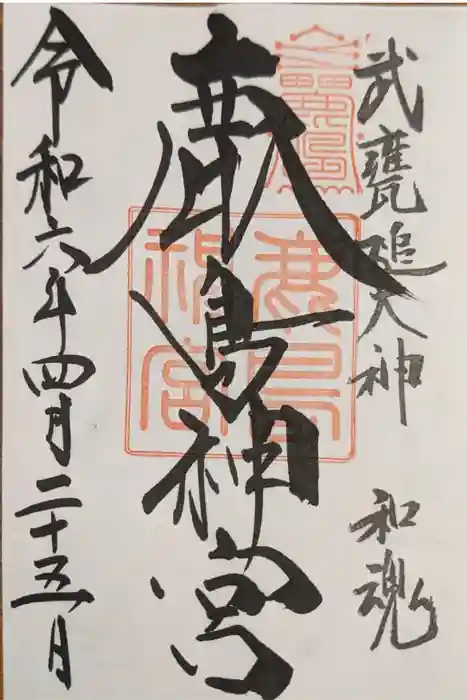 武甕鎚大神 和魂
鹿島神宮
鹿島神宮
令和六年四月二十五日